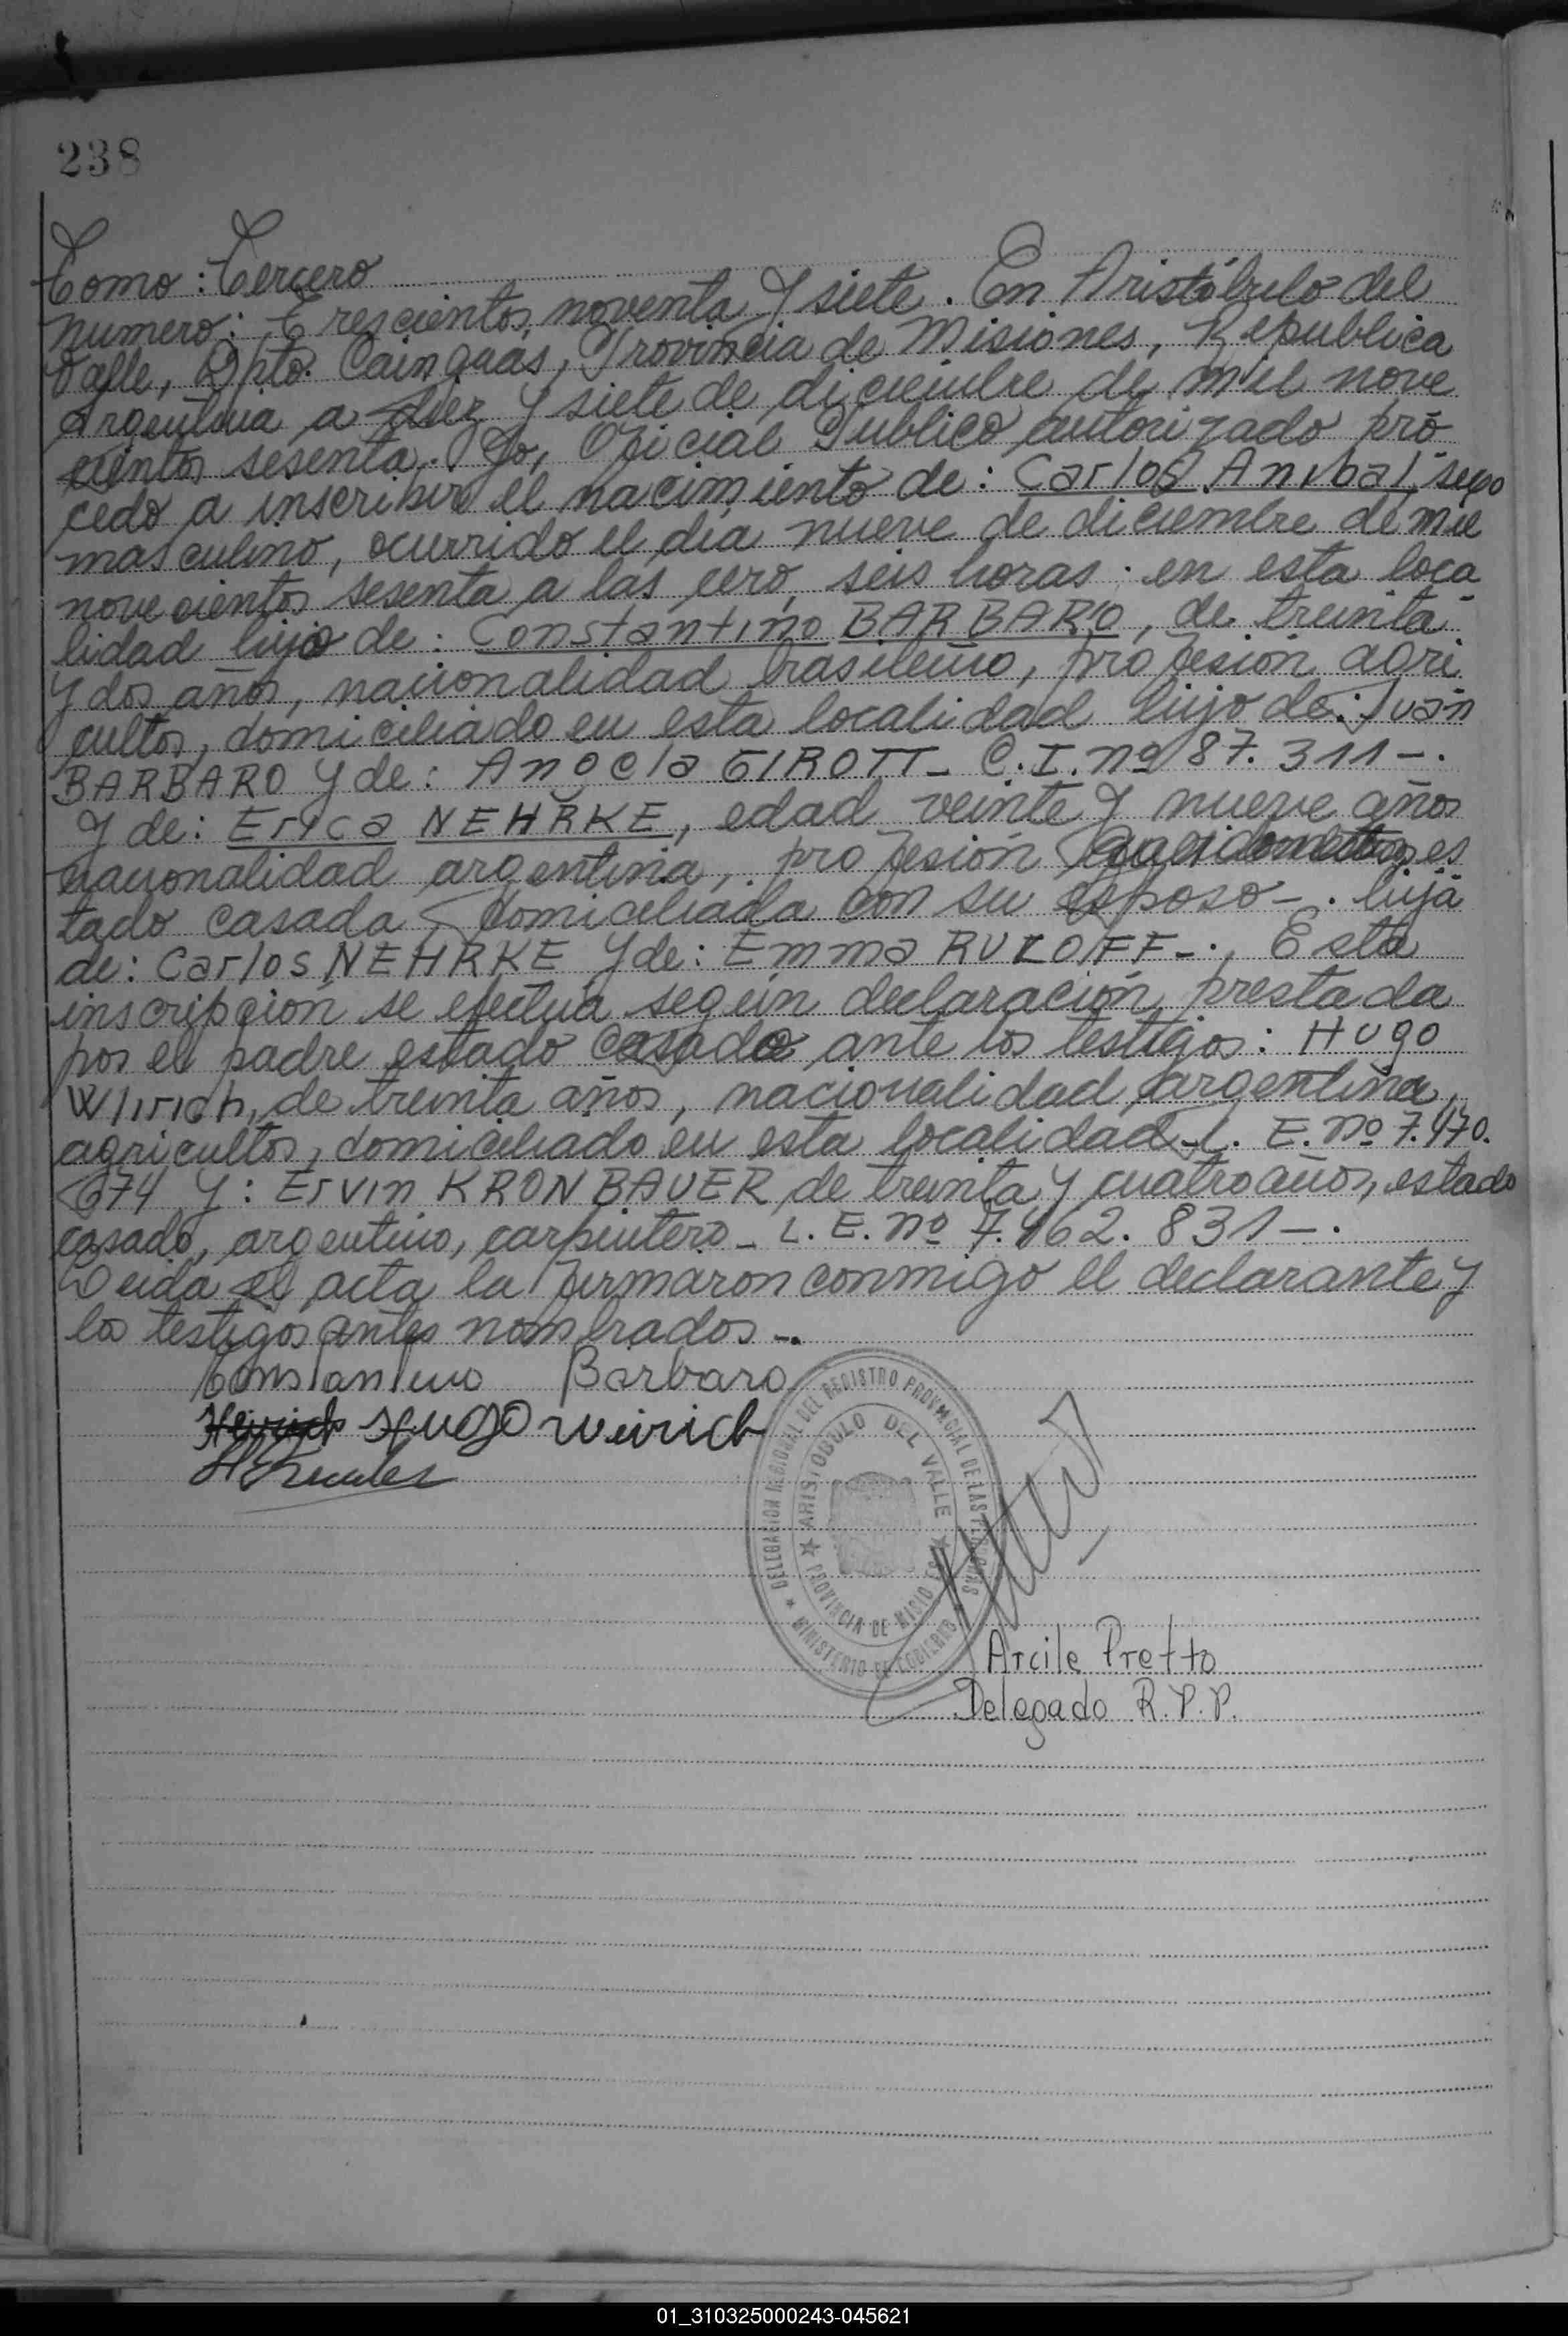 238
Tomo: Tercero
numero: Trescientos noventa y siete. En Aristóbulo del
Valle, Dpto. Cainguas, Provincia de Misiones, Republica
Argentina a diez y siete de diciembre de mil nove
cientos sesenta. Yo, Oficial Publico autorizado pro
cedo a inscribir el nacimiento de: Carlos Anibal, sexo
masculino, ocurrido el dia nueve de diciembre de mil
novecientos sesenta a las cero, seis horas. en esta loca
lidad hijo de: Constantino BARBARO, de treinta
y dos años, nacionalidad brasileño, profesión agri
cultor, domiciliado en esta localidad hijo de: Juan
BARBARO y de: Anocla GIROTT- C.I. nº 87.311-.
y de: Erica NEHRKE, edad veinte y nueve años
nacionalidad argentina, profesión es
tado casada, domiciliada con su esposo-. hija
de: Carlos NEHRKE y de: Emma RUKOFF-. Esta
inscripción se efectua según declaración prestada
por el padre estado casado ante los testigos: Hugo
Wlirich, de treinta años, nacionalidad argentina,
agricultor, domiciliado en esta localidad-L. E. nº 7.470.
674 y: Ervin KRONBAUER de treinta y cuatro años, estado
casado, argentino, carpintero- L. E. nº 7.462.831-.
Leida el acta la firmaron conmigo el declarante y
los testigos antes nombrados-.
Constantino Barbaro
Hugo Weirich
DELEGACION REGIONAL DEL REGISTRO PROVINCIAL DE LAS PERSONAS
★ ARISTOBULO DEL VALLE ★
PROVINCIA DE MISIONES
★ MINISTERIO DE GOBIERNO ★
Arcile Pretto
Delegado R.P.P.
01_310325000243-045621